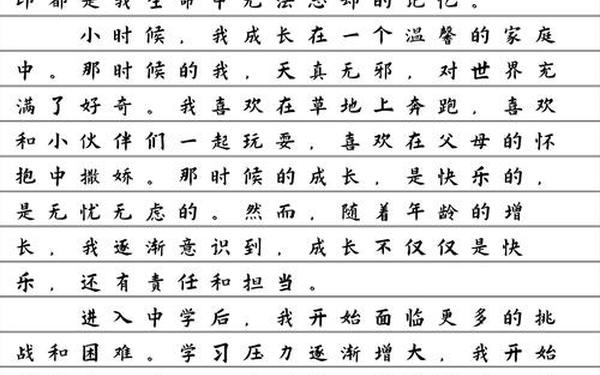 印都是我生命中无法忘却的记忆。
小时候，我成长在一个温馨的家庭
中。那时候的我，天真无邪，对世界充
满了好奇。我喜欢在草地上奔跑，喜欢
和小伙伴们一起玩耍，喜欢在父母的怀
抱中撒娇。那时候的成长，是快乐的，
是无忧无虑的。然而，随着年龄的增
长，我逐渐意识到，成长不仅仅是快
乐，还有责任和担当。
进入中学后，我开始面临更多的挑
战和困难。学习压力逐渐增大，我开始